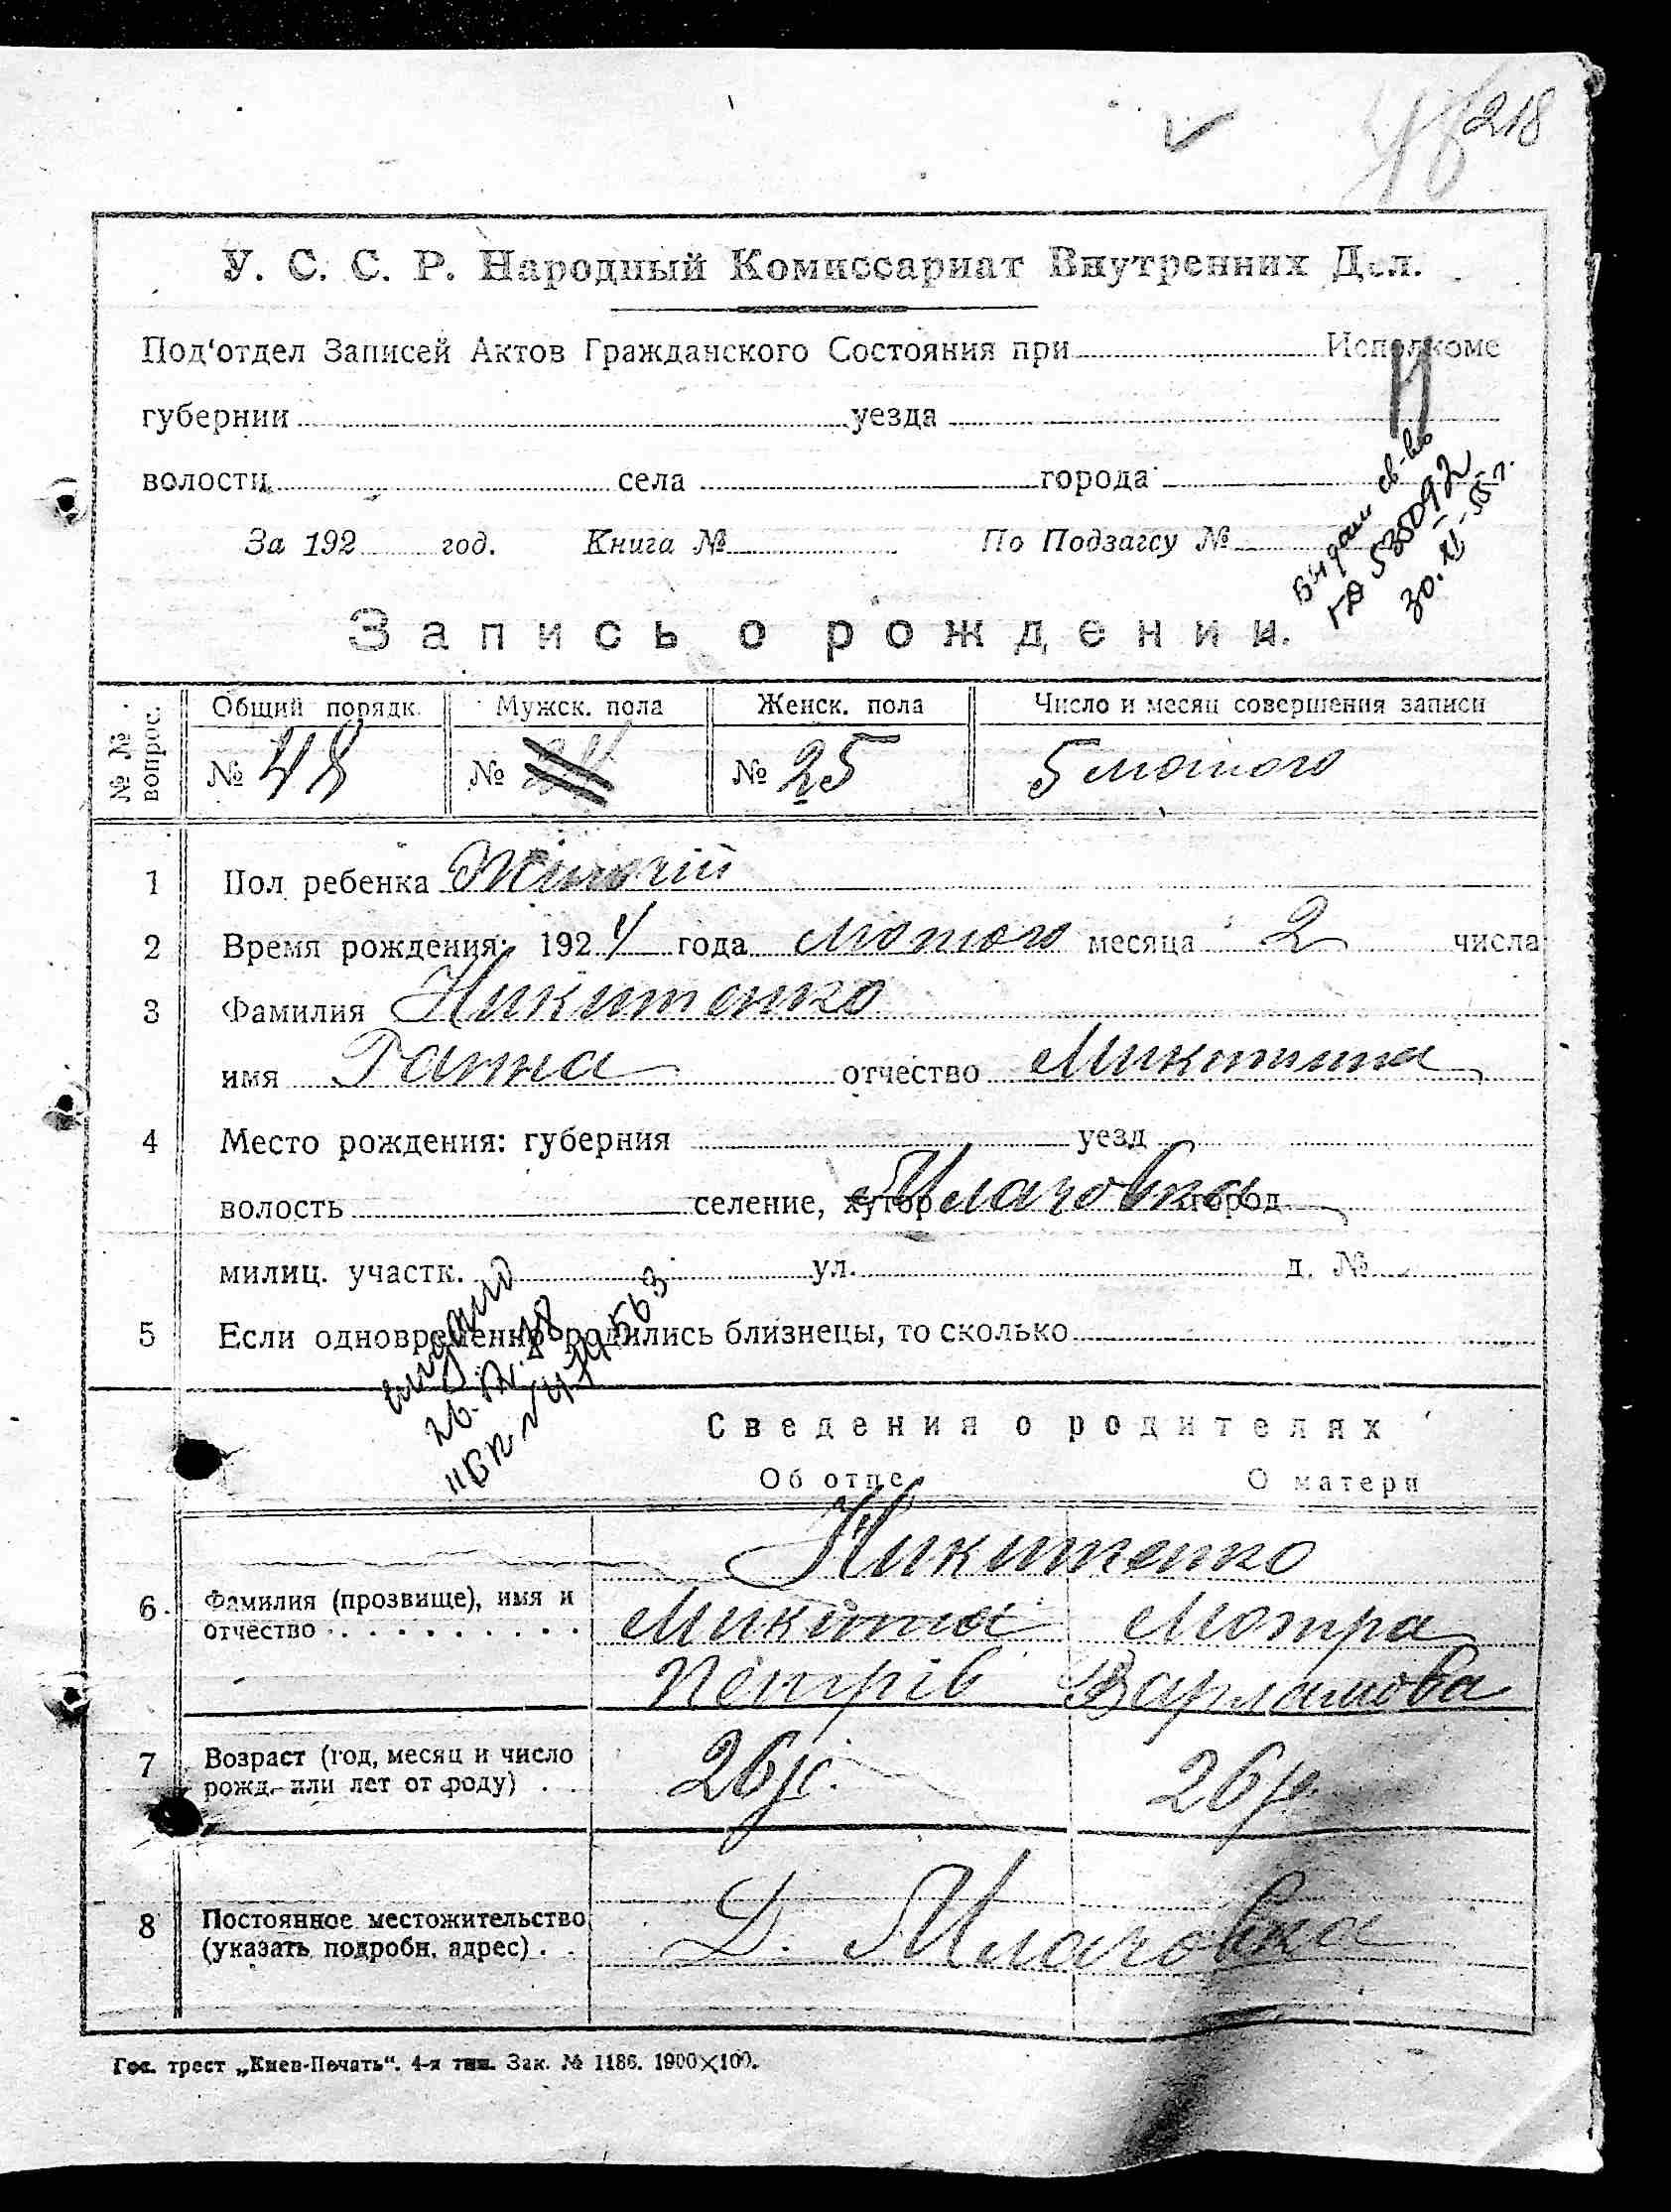 218
48
У. С. С. Р. Народный Комиссариат Внутренних Дел.
Под'отдел Записей Актов Гражданского Состояния при Исполкоме
губернии уезда
волости села города
За 192 год. Книга № По Подзагсу №
видали св-во
530092
30.XI-55 г.
Запись о рождении.
№ № вопрос. Общий порядк. Мужск. пола Женск. пола Число и месяц совершения записи
№ 48 № 24 № 25 5 лютого
1 Пол ребенка Жіночій
2 Время рождения: 1924 года лютого месяца 2 числа
3 Фамилия Никитенко
имя Ганна отчество Микитина
4 Место рождения: губерния уезд
волость селение, хутор город
милиц. участк. ул. д. №
5 Если одновременно родились близнецы, то сколько
Сведения о родителях
Об отце О матери
Никитенко
6. Фамилия (прозвище), имя и отчество Микита Мотра
Петрів Варламова
7 Возраст (год, месяц и число рожд. или лет от роду) 26 р. 26 р.
8 Постоянное местожительство (указать подробн. адрес) Д.
Гос. трест „Киев-Печать“. 4-я тип. Зак. № 1186. 1900×100.